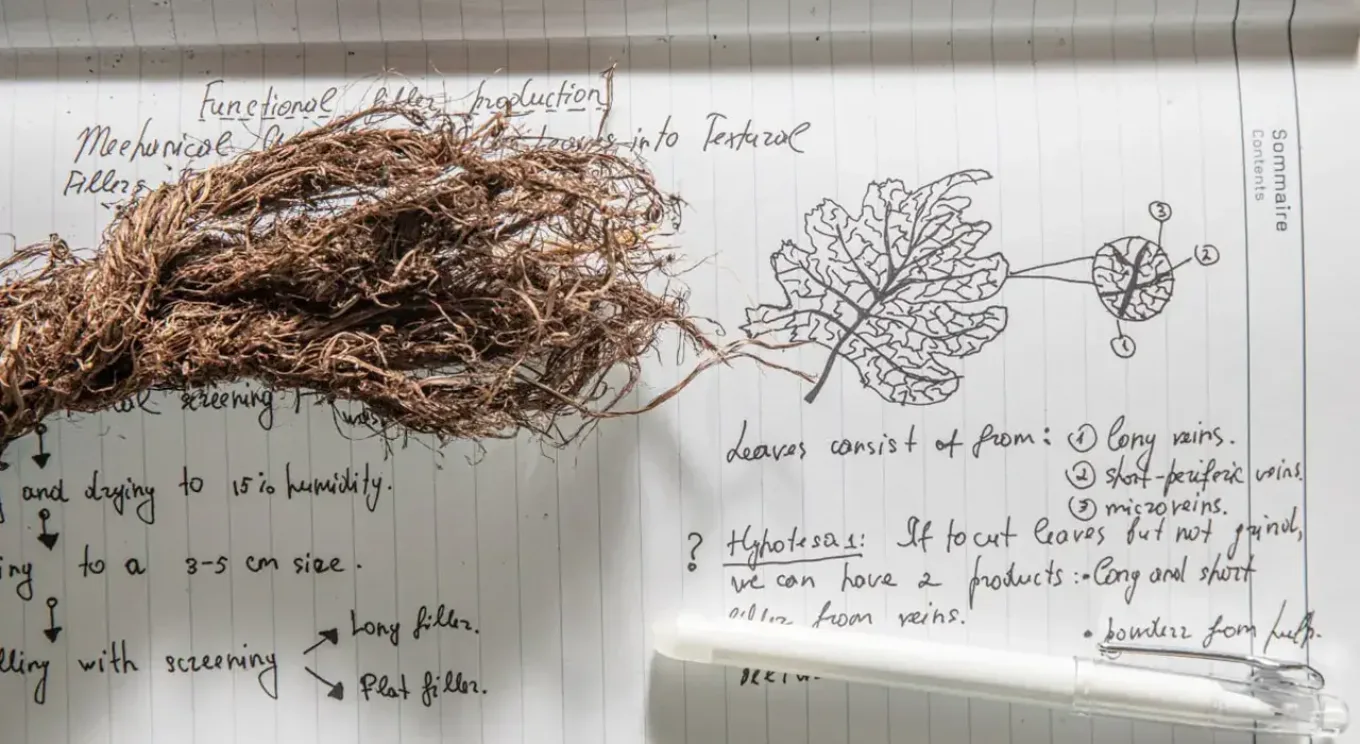 Functional filler production
Mechanical leaves into Textural
Fillers
screening
and drying to 15% humidity.
to a 3-5 cm size.
with screening
Long filler.
Flat filler.
Sommaire
Contents
3
2
1
Leaves consist of from: 1 long veins.
2 short-periferic veins.
3 microveins.
? Hypotesa 1: If to cut leaves but not grind,
we can have 2 products: • long and short
filler from veins.
• powderr from pulp.